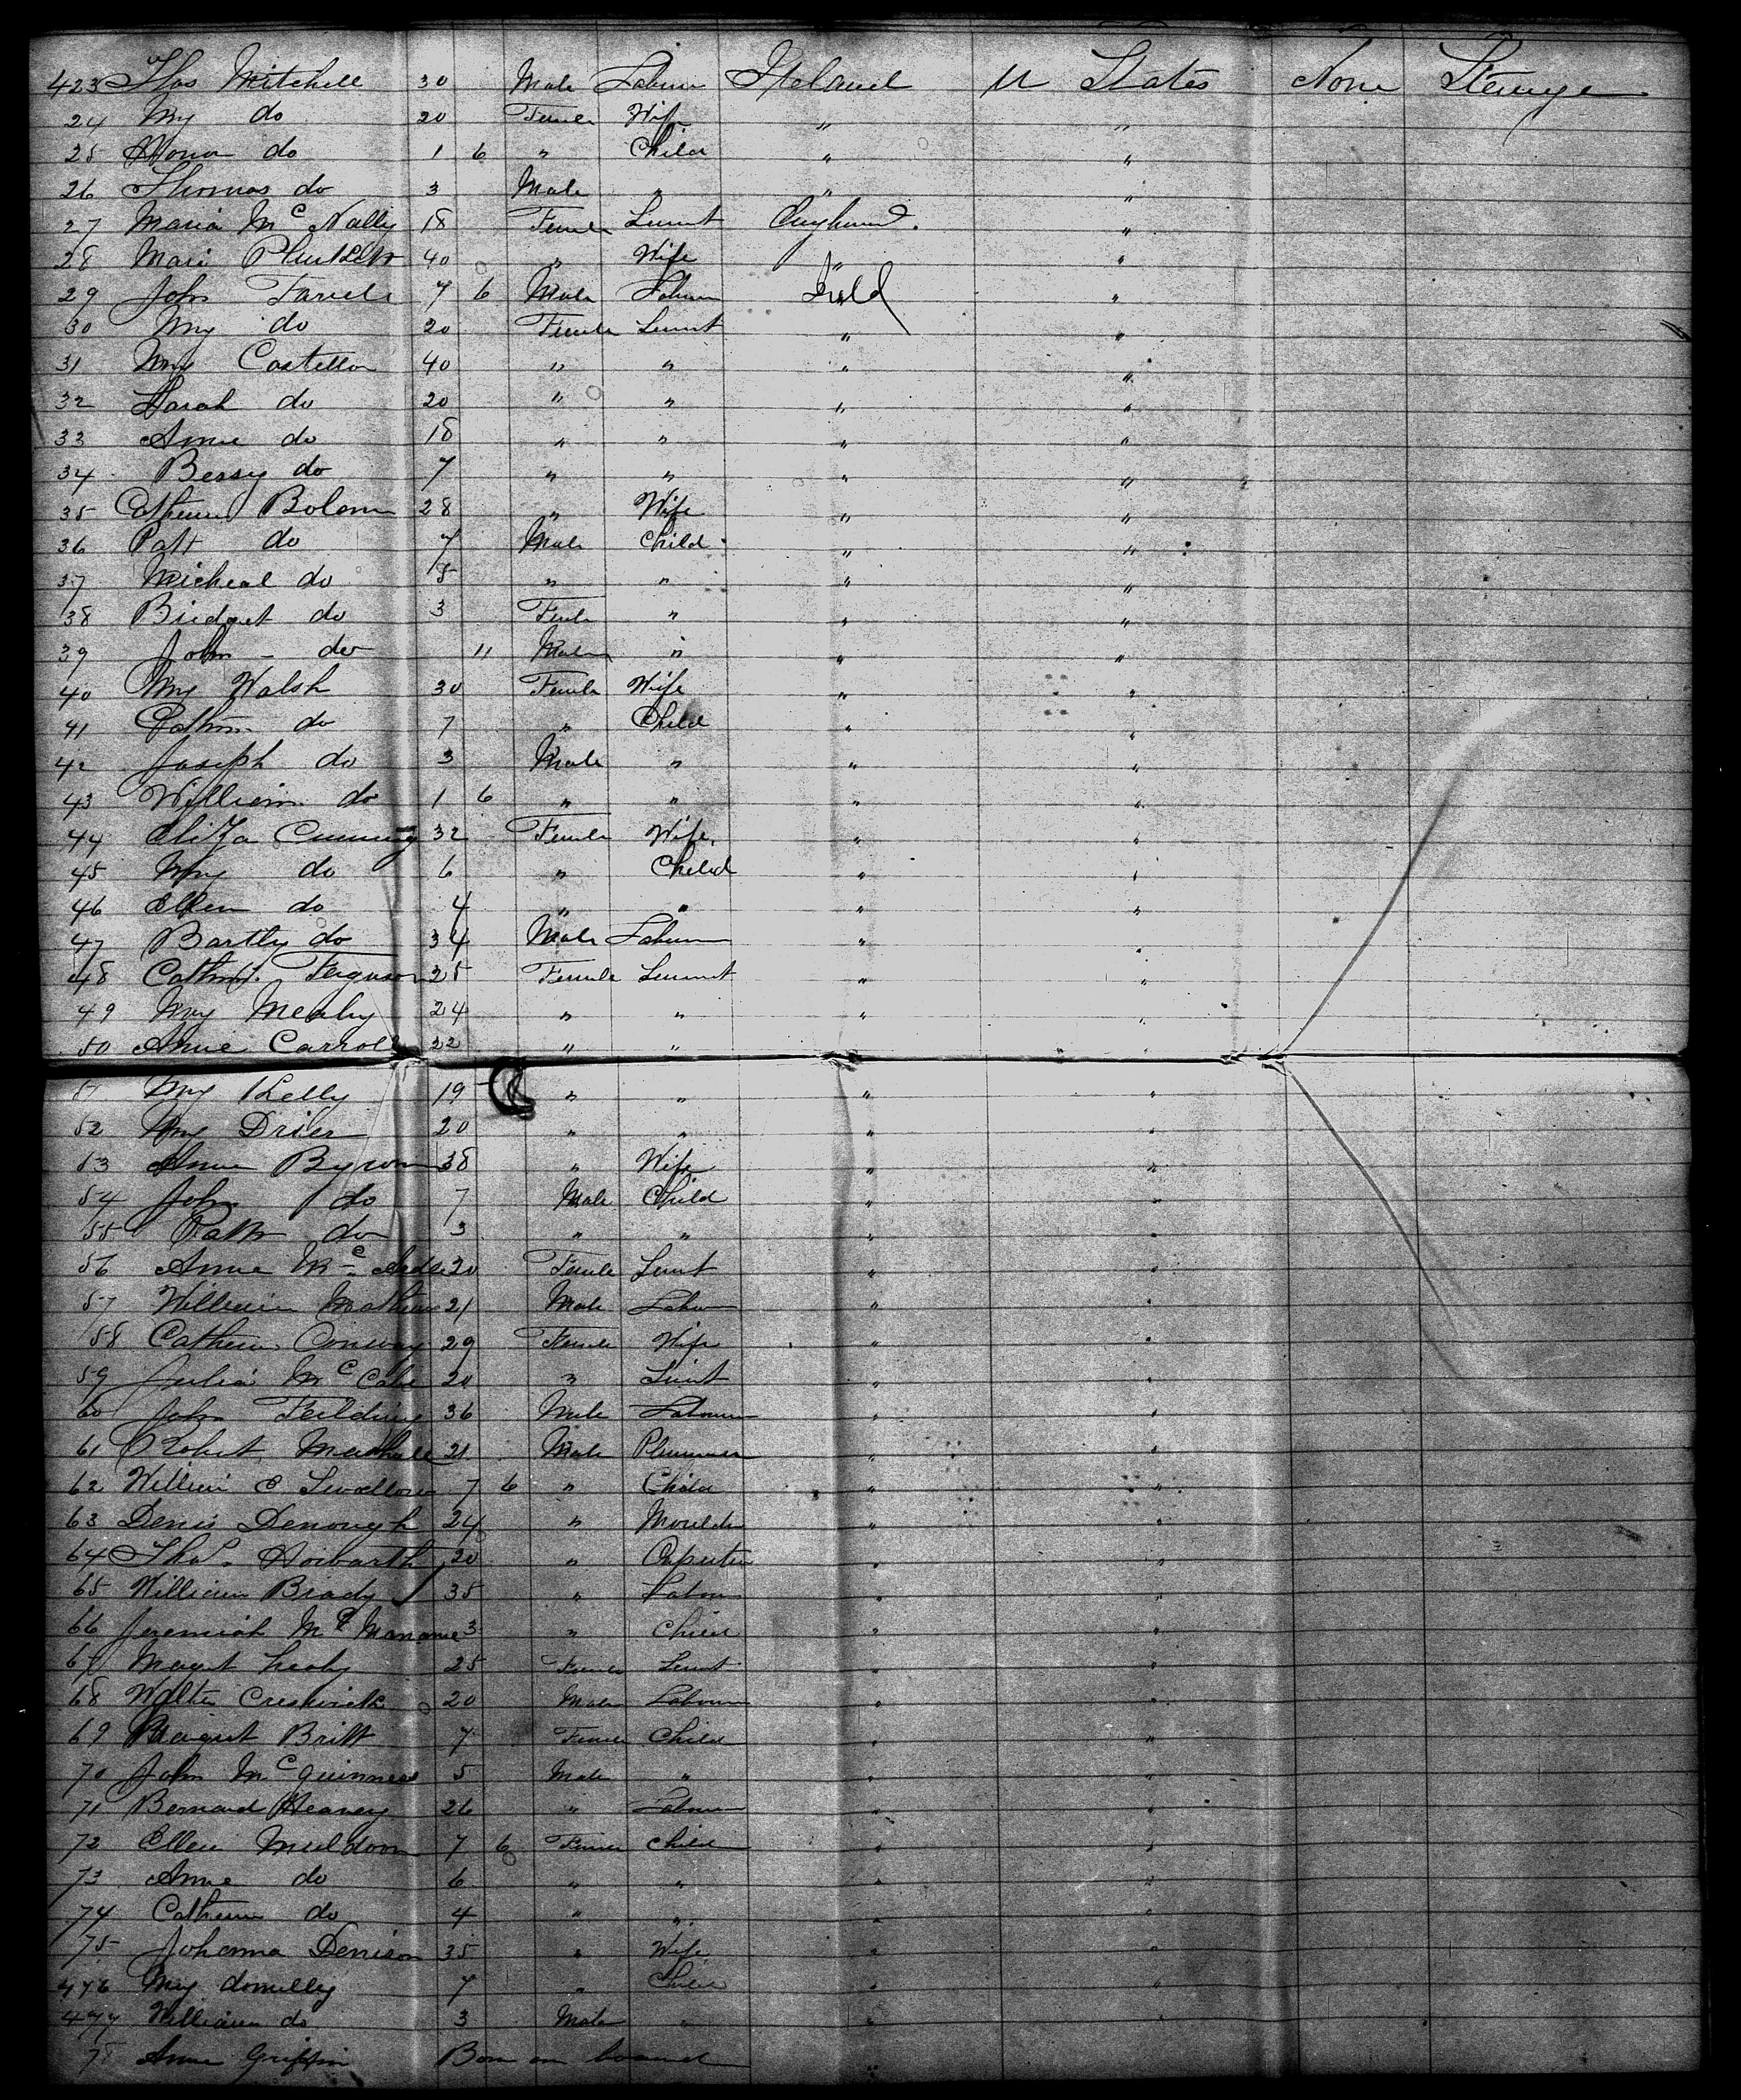 423 Thos Mitchell 30 Male Labour Ireland U States None Steerage
24 My do 20 Female Wife " "
25 Hona do 1 6 " Child " "
26 Thomas do 3 Male " " "
27 Maria McNally 18 Female Servt England "
28 Maria Plunkett 40 " Wife " "
29 John Farrell 7 6 Male Labour Ireld "
30 My do 20 Female Servt " "
31 My Costello 40 " " " "
32 Sarah do 20 " " " "
33 Anne do 18 " " " "
34 Bessy do 7 " " " "
35 Cathern 28 " Wife " "
36 Patt do 7 Male Child " "
37 Micheal do 5 " " " "
38 Bridget do 3 Femle " " "
39 John - do 11 Male " " "
40 My Walsh 30 Femle Wife " "
41 Cathrn do 7 " Child " "
42 Joseph do 3 Male " " "
43 William do 1 6 " " " "
44 Eliza 32 Female Wife " "
45 My do 6 " Child " "
46 Ellen do 4 " " " "
47 Bartly do 34 Male Labour " "
48 Cathn Ferguson 25 Female Servnt " "
49 My Mealy 24 " " " "
50 Anne Carroll 22 " " " "
51 My Kelly 19 " " " "
52 My Drier 20 " " " "
53 Anne Byron 38 " Wife " "
54 John do 7 Male Child " "
55 Patk do 3 " " " "
56 Anne McArdle 20 Femle Servt " "
57 William Mathew 21 Male Labour " "
58 Cathern Conway 29 Female Wife " "
59 Julia McCabe 20 " Servt " "
60 John Feilding 36 Male Labour " "
61 Robert 21 Male Plummer " "
62 William C Swallow 7 6 " Child " "
63 Denis Denough 24 " Moulder " "
64 Thos. 20 " Carpenter " "
65 William Brady 35 " Labour " "
66 Jeremiah McManame 3 " Child " "
67 Margt Leahy 25 Female Servt " "
68 Walter Creswick 20 Male Labour " "
69 Margret Britt 7 Female Child " "
70 John McGuinness 5 Male " " "
71 Bernard Heaney 26 " Labour " "
72 Ellen Muldoon 7 6 Female Child " "
73 Anne do 6 " " " "
74 Cathern do 4 " " " "
75 Johanna Denison 35 " Wife " "
476 My donnelly 7 " Child " "
477 William do 3 Male " " "
78 Anne Griffin Born on board "